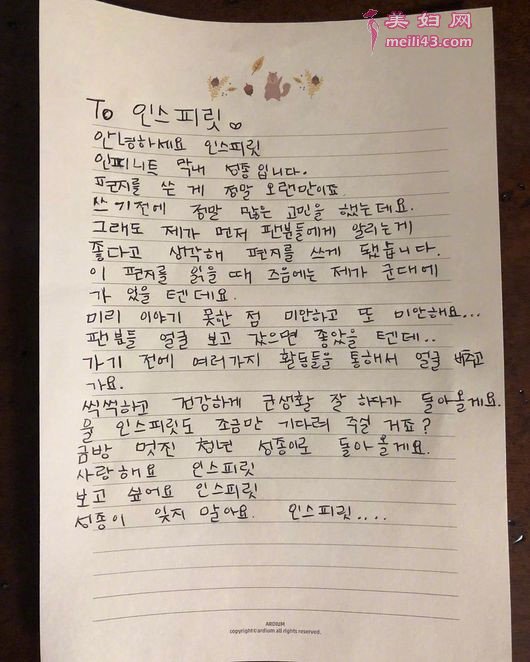 美妇网
meili43.com
To 인스피릿♡
안녕하세요 인스피릿
인피니트 막내 성종입니다.
편지를 쓴 게 정말 오랜만이죠
쓰기전에 정말 많은 고민을 했는데요.
그래도 제가 먼저 팬분들에게 알리는게
좋다고 생각해 편지를 쓰게 됐습니다.
이 편지를 읽을 때 즈음에는 제가 군대에
가 있을 텐데요.
미리 이야기 못한 점 미안하고 또 미안해요...
팬분들 얼굴 보고 갔으면 좋았을 텐데..
가기 전에 여러가지 활동들을 통해서 얼굴 비추고
가요.
씩씩하고 건강하게 군생활 잘 하다가 돌아올게요.
울 인스피릿도 조금만 기다려 주실 거죠?
금방 멋진 청년 성종이로 돌아올게요.
사랑해요 인스피릿
보고 싶어요 인스피릿
성종이 잊지 말아요. 인스피릿....
ARDIUM
copyright©ardium all rights reserved.